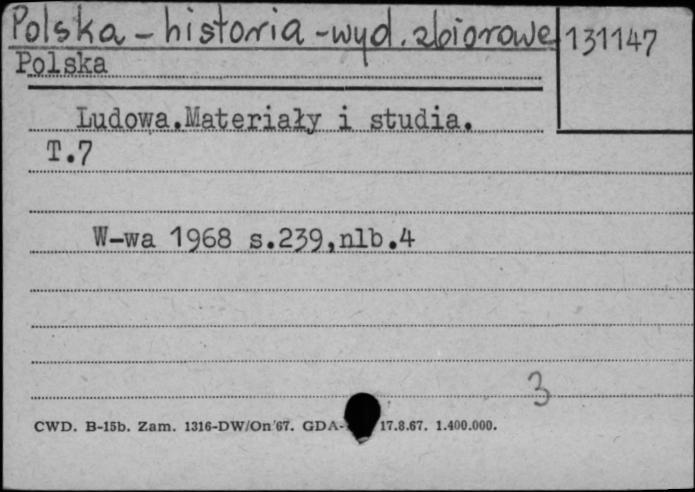 Polska - historia - wyd. zbiorowe
131147
Polska
Ludowa.Materiały i studia.
T.7
W-wa 1968 s.239,nlb.4
3
CWD. B-15b. Zam. 1316-DW/On/67. GDA- 17.8.67. 1.400.000.